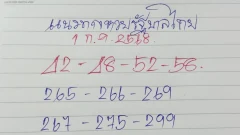 แนวทางหวยรัฐบาลไทย
1 ก.ค 2568
42-48-52-58.
265-266-269
267-275-299